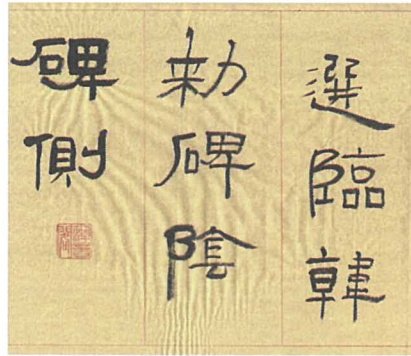 選臨韓
勑碑陰
碑側